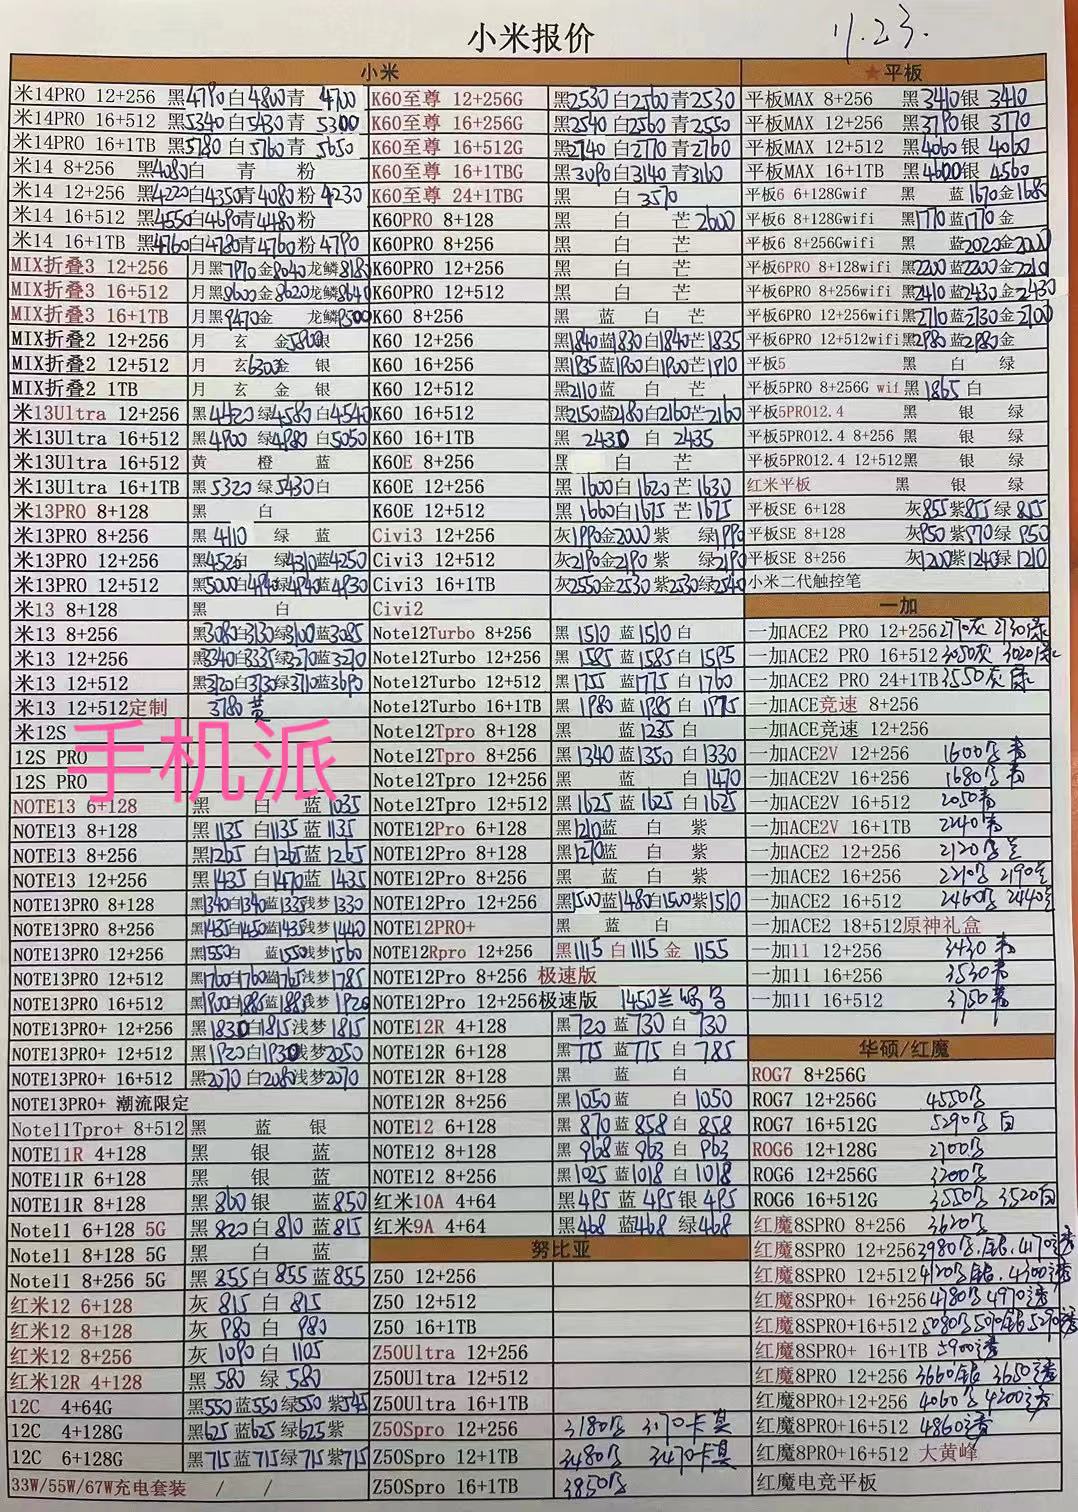 小米报价
11.23.
小米
米14PRO 12+256 黑4790白4800青 4700
米14PRO 16+512 黑5340白5430青 5300
米14PRO 16+1TB 黑5780白5760青 5650
米14 8+256 黑4080白 青 粉
米14 12+256 黑4220白4350青4080粉 4230
米14 16+512 黑4550白4690青4480粉
米14 16+1TB 黑4760白4780青4760粉 4790
MIX折叠3 12+256 月黑7970金8040龙鳞8180
MIX折叠3 16+512 月黑8600金8620龙鳞8640
MIX折叠3 16+1TB 月黑9470金 龙鳞9500
MIX折叠2 12+256 月 玄 金5800银
MIX折叠2 12+512 月 玄6300金 银
MIX折叠2 1TB 月 玄 金 银
米13Ultra 12+256 黑4420绿4580白4540
米13Ultra 16+512 黑4900 绿4980 白5050
米13Ultra 16+512 黄 橙 蓝
米13Ultra 16+1TB 黑5320绿5430白
米13PRO 8+128 黑 白
米13PRO 8+256 黑4110 绿 蓝
米13PRO 12+256 黑4520白 绿4310蓝4250
米13PRO 12+512 黑5000白4940绿4940蓝4930
米13 8+128 黑 白
米13 8+256 黑3080白3130绿3100蓝3085
米13 12+256 黑3340白3335绿3270蓝3270
米13 12+512 黑3720白3730绿3710蓝3690
米13 12+512定制 3780 黄
米12S
12S PRO
12S PRO
手机派
NOTE13 6+128 黑 白 蓝1035
NOTE13 8+128 黑1135 白1135 蓝 1135
NOTE13 8+256 黑1265 白1265蓝 1265
NOTE13 12+256 黑1435白1470蓝 1435
NOTE13PRO 8+128 黑1340白1340蓝1335浅梦1330
NOTE13PRO 8+256 黑1435白1450蓝1435浅梦1440
NOTE13PRO 12+256 黑1550白 蓝1550浅梦1560
NOTE13PRO 12+512 黑1760白1760蓝1765浅梦1785
NOTE13PRO 16+512 黑1900白1885蓝1885浅梦1920
NOTE13PRO+ 12+256 黑1830白1815浅梦 1815
NOTE13PRO+ 12+512 黑1920白1930浅梦2050
NOTE13PRO+ 16+512 黑2070 白2080浅梦2070
NOTE13PRO+ 潮流限定
Note11Tpro+ 8+512 黑 蓝 银
NOTE11R 4+128 黑 银 蓝
NOTE11R 6+128 黑 银 蓝
NOTE11R 8+128 黑 860 银 蓝850
Note11 6+128 5G 黑 820白 810 蓝 815
Note11 8+128 5G 黑 白 蓝
Note11 8+256 5G 黑 855白 855 蓝855
红米12 6+128 灰 815 白 815
红米12 8+128 灰 980 白 980
红米12 8+256 灰 1090 白 1105
红米12R 4+128 黑 580 绿 580
12C 4+64G 黑550蓝550绿550 紫545
12C 4+128G 黑625蓝625绿625紫
12C 6+128G 黑715蓝715绿 715紫715
33W/55W/67W充电套装 / /
K60至尊 12+256G 黑2530白2560青2530
K60至尊 16+256G 黑2540 白2560 青2550
K60至尊 16+512G 黑2740 白2770青2760
K60至尊 16+1TBG 黑3090白3140青3160
K60至尊 24+1TBG 黑 白 3570
K60PRO 8+128 黑 白 芒 2600
K60PRO 8+256 黑 白 芒
K60PRO 12+256 黑 白 芒
K60PRO 12+512 黑 白 芒
K60 8+256 黑 蓝 白 芒
K60 12+256 黑1840蓝1830白1840芒1835
K60 16+256 黑1935蓝1900白1900芒1910
K60 12+512 黑2110 蓝 白 芒
K60 16+512 黑2150蓝2180白2160芒2160
K60 16+1TB 黑 2430 白 2435
K60E 8+256 黑 白 芒
K60E 12+256 黑 1600白1620 芒 1630
K60E 12+512 黑 1660白1675 芒 1675
Civi3 12+256 灰1990金2000紫 绿1990
Civi3 12+512 灰2190金2190 紫 绿2190
Civi3 16+1TB 灰2550金2530 紫2530绿2540
Civi2
Note12Turbo 8+256 黑 1510 蓝1510白
Note12Turbo 12+256 黑 1585 蓝1585白 1595
Note12Turbo 12+512 黑 1755 蓝1775 白 1760
Note12Turbo 16+1TB 黑 1980 蓝1985 白 1975
Note12Tpro 8+128 黑 蓝1235白
Note12Tpro 8+256 黑1340 蓝1350 白1330
Note12Tpro 12+256 黑 蓝 白1470
Note12Tpro 12+512 黑1625 蓝1625白1625
NOTE12Pro 6+128 黑1210蓝 白 紫
NOTE12Pro 8+128 黑1270蓝 白 紫
NOTE12Pro 8+256 黑 蓝 白 紫
NOTE12Pro 12+256 黑1500蓝1480白1500紫1510
NOTE12PRO+ 黑 蓝 白
NOTE12Rpro 12+256 黑1115 白1115 金 1155
NOTE12Pro 8+256 极速版
NOTE12Pro 12+256极速版 1450兰
NOTE12R 4+128 黑 720 蓝730 白 730
NOTE12R 6+128 黑 775 蓝775 白 785
NOTE12R 8+128 黑 蓝 白
NOTE12R 8+256 黑1050蓝 白 1050
NOTE12 6+128 黑 870蓝 858白 858
NOTE12 8+128 黑 968蓝 963 白 963
NOTE12 8+256 黑1025 蓝1018 白 1018
红米10A 4+64 黑495 蓝 495银 495
红米9A 4+64 黑468 蓝468 绿468
努比亚
Z50 12+256
Z50 12+512
Z50 16+1TB
Z50Ultra 12+256
Z50Ultra 12+512
Z50Ultra 16+1TB
Z50Spro 12+256 3180 3170卡其
Z50Spro 12+1TB 3480 3470卡其
Z50Spro 16+1TB 3850
★平板
平板MAX 8+256 黑3410银 3410
平板MAX 12+256 黑3790银 3770
平板MAX 12+512 黑4060银 4060
平板MAX 16+1TB 黑4600银 4560
平板6 6+128Gwif 黑 蓝1670金1680
平板6 8+128Gwifi 黑1770蓝1770金
平板6 8+256Gwifi 黑 蓝2020金2000
平板6PRO 8+128wifi 黑2200 蓝2200金2210
平板6PRO 8+256wifi 黑2410 蓝2430金2430
平板6PRO 12+256wifi黑2710 蓝2730金2700
平板6PRO 12+512wifi黑2980 蓝2980金
平板5 黑 白 绿
平板5PRO 8+256G wif 黑1865 白
平板5PRO12.4 黑 银 绿
平板5PRO12.4 8+256 黑 银 绿
平板5PRO12.4 12+512黑 银 绿
红米平板 黑 银 绿
平板SE 6+128 灰855紫855绿 855
平板SE 8+128 灰950紫970绿 950
平板SE 8+256 灰1200紫1240绿 1210
小米二代触控笔
一加
一加ACE2 PRO 12+256 2770灰 2730绿
一加ACE2 PRO 16+512 3050灰 3020绿
一加ACE2 PRO 24+1TB 3550灰 绿
一加ACE竞速 8+256
一加ACE竞速 12+256
一加ACE2V 12+256 1600
一加ACE2V 16+256 1680
一加ACE2V 16+512 2050
一加ACE2V 16+1TB 2240
一加ACE2 12+256 2120
一加ACE2 16+256 2210 2190兰
一加ACE2 16+512 2460 2440兰
一加ACE2 18+512原神礼盒
一加11 12+256 3430
一加11 16+256 3530
一加11 16+512 3750
华硕/红魔
ROG7 8+256G
ROG7 12+256G 4550
ROG7 16+512G 5290 白
ROG6 12+128G 2700
ROG6 12+256G 3200
ROG6 16+512G 3550 3520白
红魔8SPRO 8+256 3620
红魔8SPRO 12+256 3980 4170透
红魔8SPRO 12+512 4120 4300透
红魔8SPRO+ 16+256 4780 4970透
红魔8SPRO+16+512 5080 5290透
红魔8SPRO+ 16+1TB 5900透
红魔8PRO 12+256 3660 3650透
红魔8PRO+ 12+256 4060 4200透
红魔8PRO+16+512 4860透
红魔8PRO+16+512 大黄蜂
红魔电竞平板